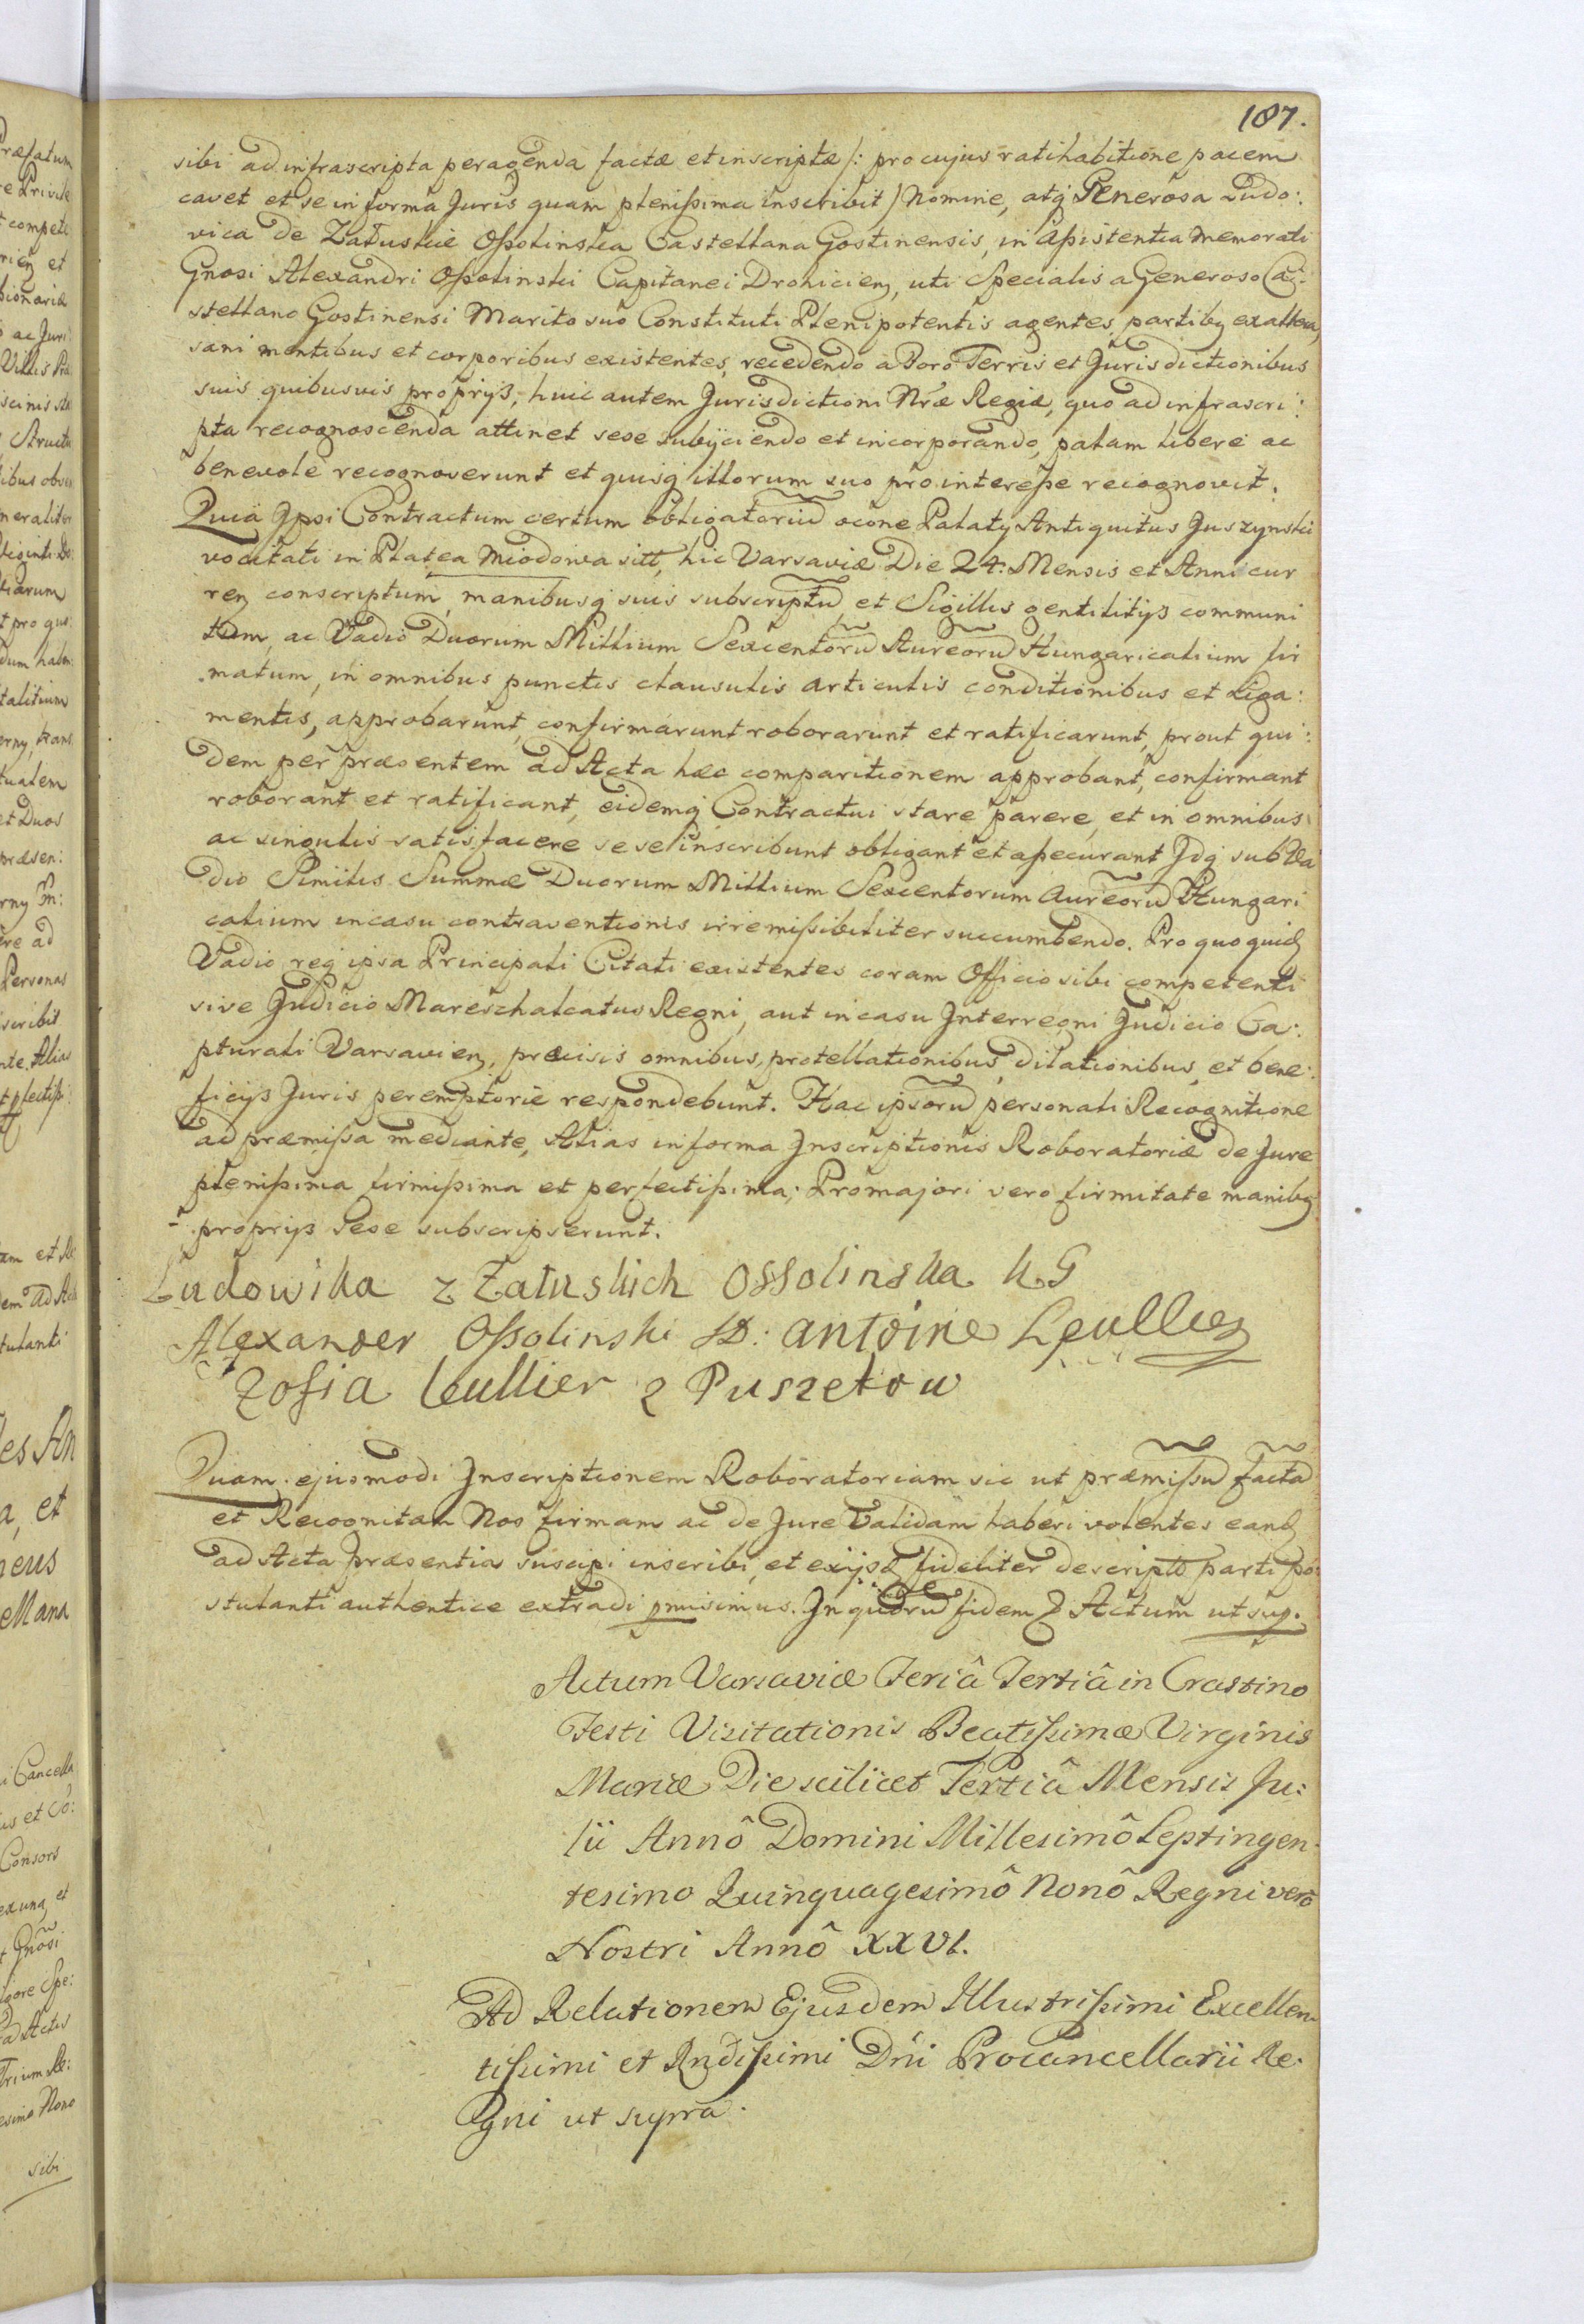 187.
sibi ad infrascripta peragenda factæ et inscriptæ /: pro cujus ratihabitione pacem
cavet et se in forma Juris quam plenissima inscribit / Nomine, atq Generosa Ludo:
vica de Załuskie Ossolinska Castellana Gostinensis, in Assistentia memorati
Gnosi Alexandri Ossolinski Capitanei Drohicien, uti Specialis a Generoso Ca:
stellano Gostinensi Marito suo Constituti Plenipotentis agentes, partibq ex altera,
sani mentibus et corporibus existentes, recedendo a Foro Terris et Jurisdictionibus
suis quibusvis proprijs, huic autem Jurisdictioni Nræ Regiæ, quo ad infrascri:
pta recognoscenda attinet sese subijciendo et incorporando, palam libere ac
benevole recognoverunt et quisq illorum suo pro interesse recognovit.
Quia Ipsi Contractum certum obligatoriũ ocône Palaty Antiquitus Juszynski
vocitati in Platea Miodowa sitt, hic Varsaviæ Die 24. Mensis et Anni cur
ren conscriptum, manibusq suis subscriptũ, et Sigillis gentilitijs communi
tum, ac Vadio Duorum Millium Sexcentorũ Aureorũ Hungaricalium fir
matum, in omnibus punctis clausulis articulis conditionibus et Liga:
mentis, approbarunt, confirmarunt roborarunt et ratificarunt, prout qui:
dem per præsentem ad Acta hæc comparitionem approbant, confirmant
roborant et ratificant, eidemq Contractui stare parere, et in omnibus
ac singulis satisfacere sese inscribunt obligant et assecurant Idq sub Va
dio Similis Summæ Duorum Millium Sexcentorum Aureorũ Hungari
calium in casu contraventionis irremissibiliter succumbendo. Pro quo quid
Vadio req ipsa Principali Citati existentes coram Officio sibi competenti
sive Judicio Mareschalcatus Regni, aut in casu Interregni Judicio Ca:
pturali Varsavien, præcisis omnibus, protellationibus, dilationibus, et bene:
ficijs Juris peremptorie respondebunt. Hac ipsorũ personali Recognitione
ad præmissa mediante, Alias in forma Inscriptionis Roboratoriæ de Jure
plenissima firmissima et perfectissima; Pro majori vero firmitate manibq
proprijs sese subscripserunt.
Ludowika z Załuskich Ossolinska K G
Alexander Ossolinski SD: antoine Leullier
Zofia leullier z Puszetow
Quam ejusmodi Inscriptionem Roboratoriam sic ut præmissũ factã
et Recognitam Nos firmam ac de Jure Validam haberi volentes eand
ad Acta Præsentia suscipi inscribi, et ex ijsd fideliter descriptã parti po:
stulanti authentice extradi pmisimus. In quorũ fidem Actum ut sup.
Actum Varsaviæ Feriâ Tertiâ in Crastino
Festi Visitationis Beatissimæ Virginis
Mariæ Die scilicet Tertiâ Mensis Ju:
lii Annô Domini Millesimô Septingen
tesimo Quinquagesimô Nonô Regni verò
Nostri Annô XXVI.
Ad Relationem Ejusdem Illustrissimi Excellen
tissimi et Rndissimi Dñi Procancellarii Re
gni ut supra.